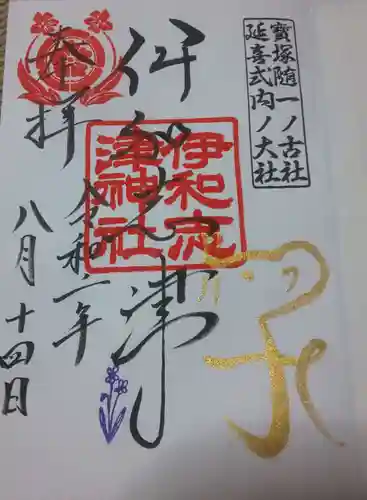 寶塚随一ノ古社
延喜式内ノ大社
伊和志津
伊和志
津神社
奉拝
令和二年
八月十四日
子